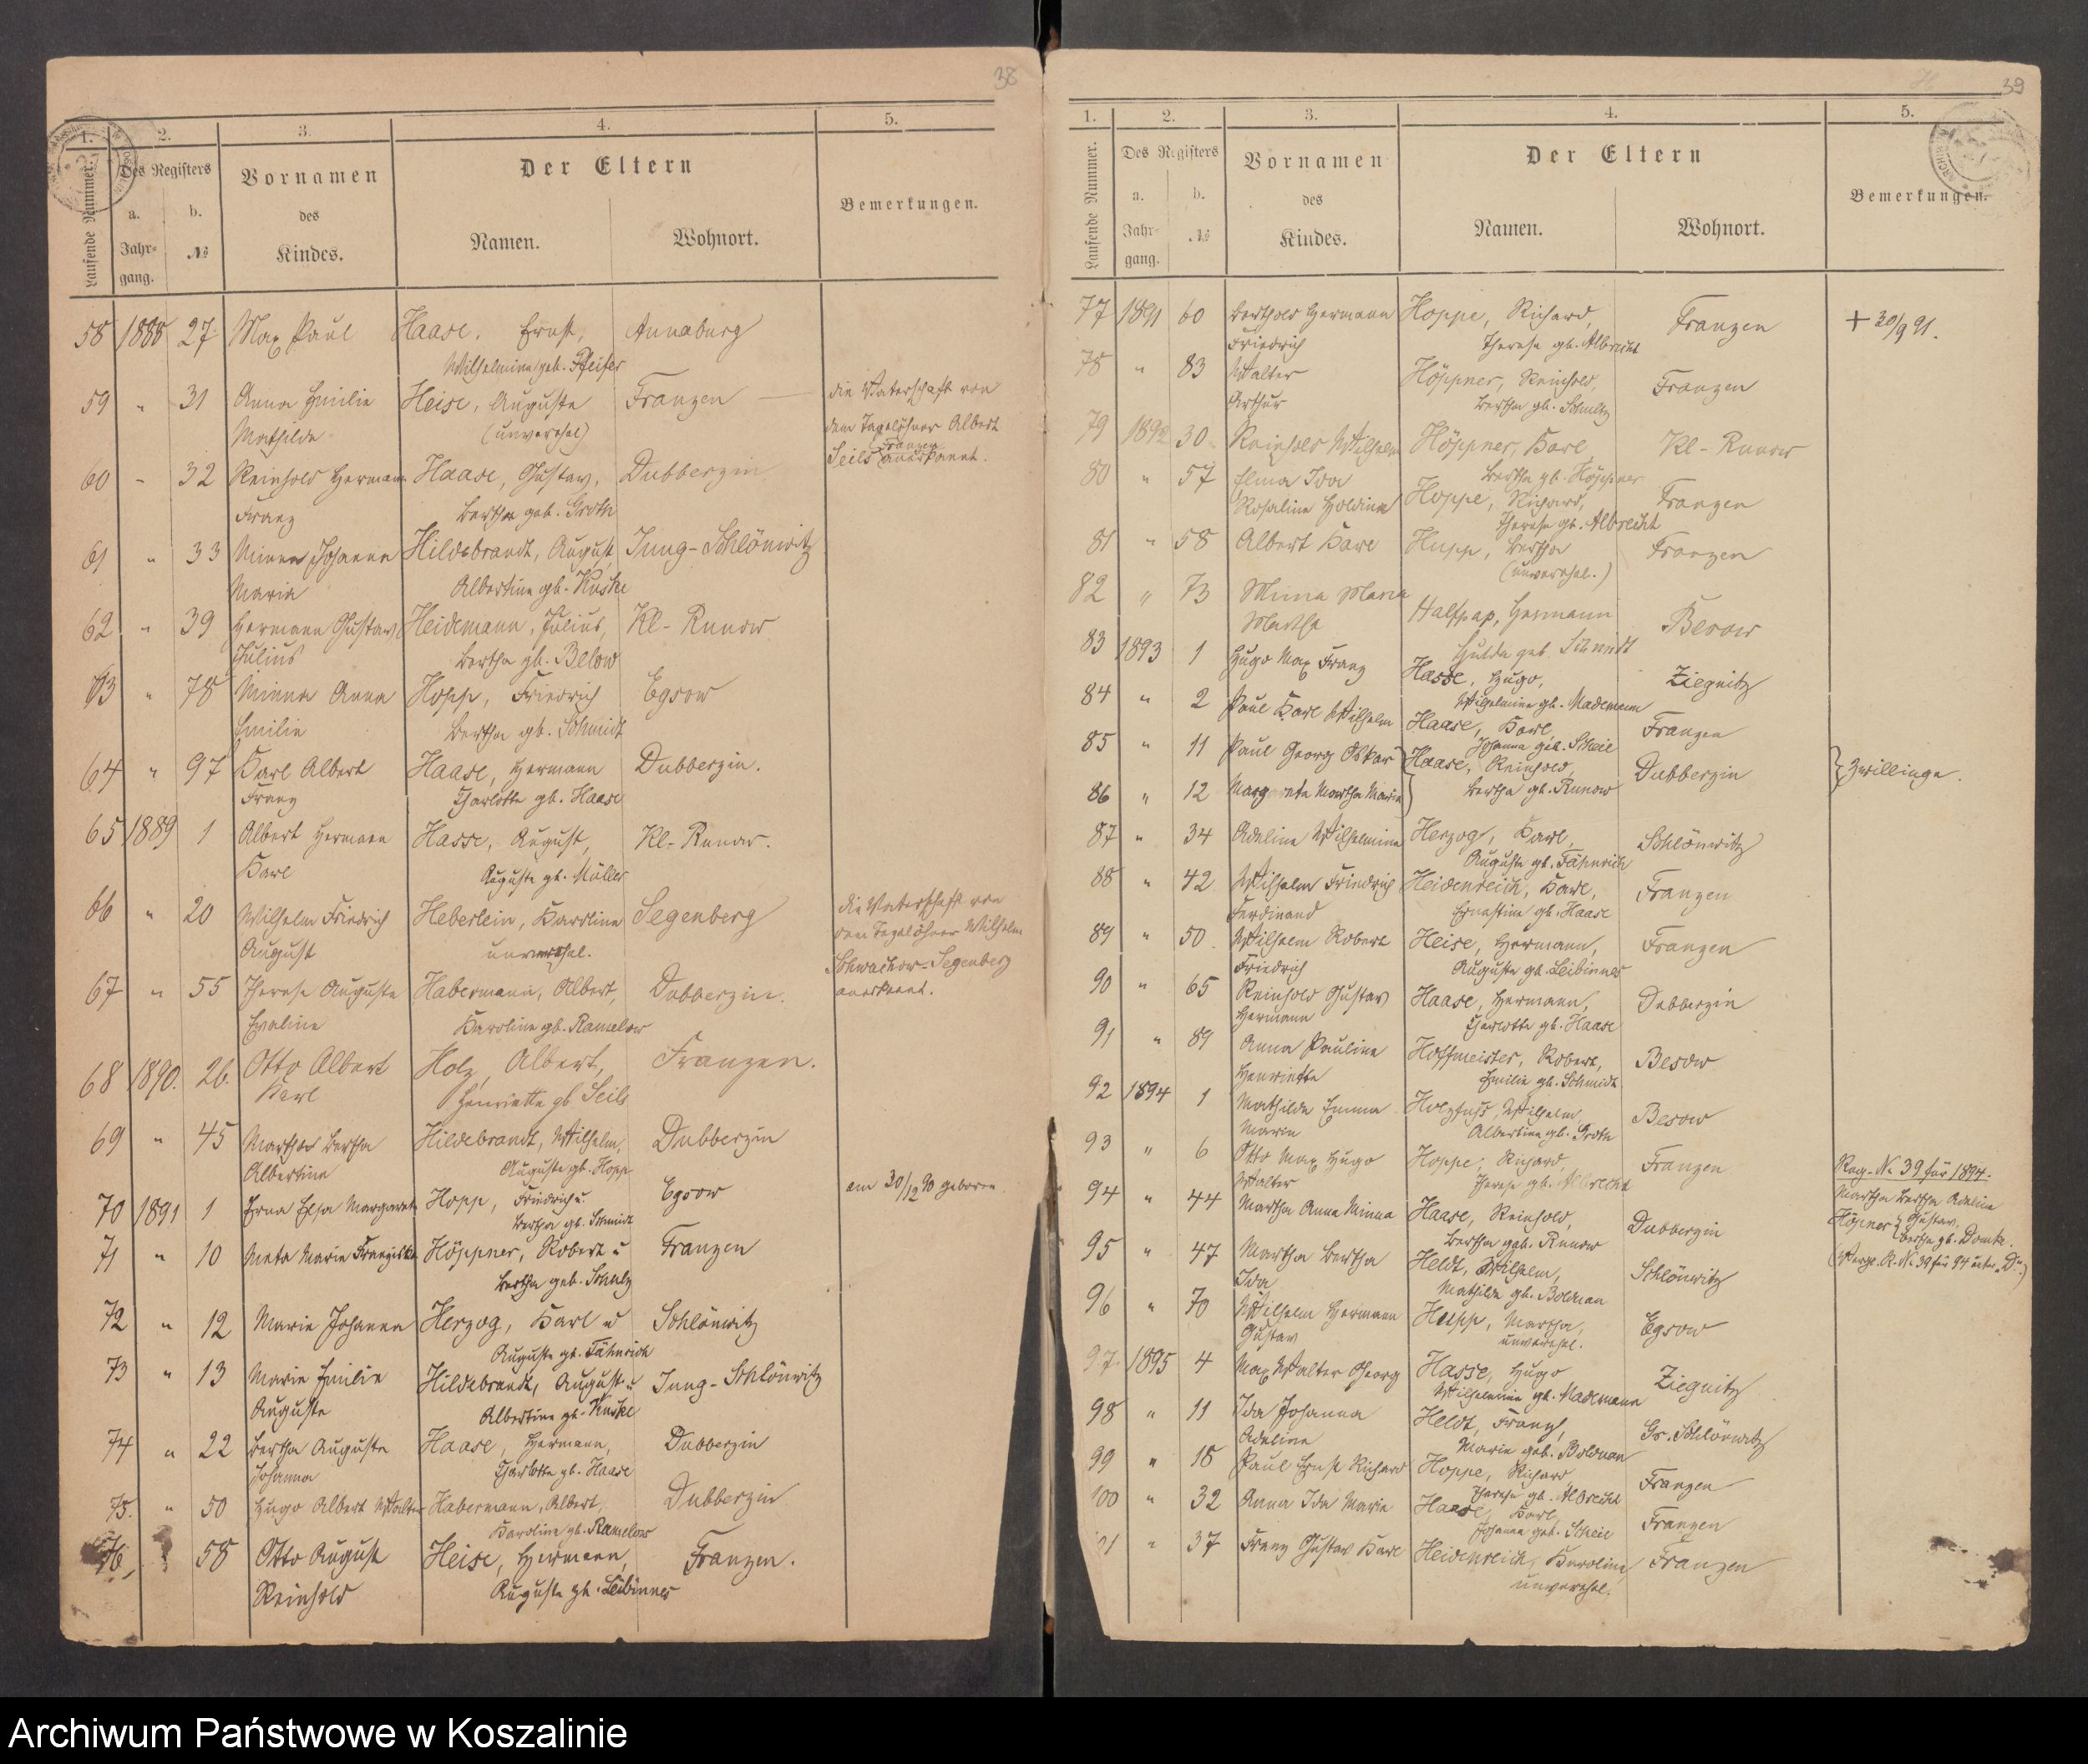 38
1. 2. 3. 4. 5.
Laufende Nummer. Des Registers Vornamen des Kindes. Der Eltern Bemerkungen.
a. Jahrgang. b. № Namen. Wohnort.
58 1888 27. Max Paul Haase, Ernst, Annaburg
Wilhelmine geb. Pfeifer
59 " 31 Anna Emilie Heise, Auguste Franzen die Vaterschaft von
Mathilde (unverehel) dem Tagelöhner Albert
Seils Franzen anerkannt.
60 - 32 Reinhold Hermann Haase, Gustav, Dubberzin
Franz Bertha geb. Groth
61 " 33 Minna Johanna Hildebrandt, August, Jung-Schlönwitz
Maria Albertine gb. Kuske
62 " 39 Hermann Gustav Heidemann, Julius, Kl- Runow
Julius Bertha gb. Below
63 " 78 Minna Anna Hopp, Friedrich Egsow
Emilie Bertha gb. Schmidt
64 " 97 Karl Albert Haase, Hermann Dubberzin.
Franz Charlotte gb. Haase
65 1889 1 Albert Hermann Hasse, August, Kl- Runow.
Karl Auguste gb. Müller
66 " 20 Wilhelm Friedrich Heberlein, Karoline Segenberg die Vaterschaft von
August unverehel. dem Tagelöhner Wilhelm
Schwachow-Segenberg
67 " 55 Therese Auguste Habermann, Albert, Dubberzin. anerkannt.
Evaline Karoline gb. Ramelow
68 1890. 26. Otto Albert Holz, Albert, Franzen.
Karl Henriette gb Seils
69 " 45 Martha Bertha Hildebrandt, Wilhelm, Dubberzin
Albertine Auguste gb. Hopp
70 1891 1 Erna Elsa Margarete Hopp, Friedrich u. Egsow am 30/12 90 geboren
Bertha gb. Schmidt
71 " 10 Meta Marie Franziska Höppner, Robert u Franzen
Bertha geb. Schulz
72 " 12 Marie Johanna Herzog, Karl u Schlönwitz
Auguste gb. Fähnrich
73 " 13 Marie Emilie Hildebrandt, August u Jung-Schlönwitz
Auguste Albertine gb. Kuske
74 " 22 Bertha Auguste Haase, Hermann, Dubberzin
Johanna Charlotte gb. Haase
75. " 50 Hugo Albert Walter Habermann, Albert, Dubberzin
Karoline gb. Ramelow
76, 58 Otto August Heise, Hermann, Franzen.
Reinhold Auguste gb. Leibinnes
39
1. 2. 3. 4. 5.
Laufende Nummer. Des Registers Vornamen des Kindes. Der Eltern Bemerkungen.
a. Jahrgang. b. № Namen. Wohnort.
77 1891 60 Berthold Hermann Hoppe, Richard, Franzen + 30/9 91.
Friedrich Therese gb. Albrecht
78 " 83 Walter Höppner, Reinhold, Franzen
Arthur Bertha gb. Schultz
79 1892 30 Reinhold Wilhelm Höppner, Karl Kl- Runow
Bertha gb. Höppner
80 " 57 Elma Ida Hoppe, Richard, Franzen
Rosaline Holdine Therese gb. Albrecht
81 " 58 Albert Karl Hupp, Bertha Franzen
(unverehel.)
82 " 73 Minna Maria Halfpap, Hermann Besow
Martha Hulda geb. Schmidt
83 1893 1 Hugo Max Franz Hasse, Hugo, Ziegnitz
Wilhelmine gb. Mademann
84 " 2 Paul Karl Wilhelm Haase, Karl, Franzen
Johanna geb. Scheil
85 " 11 Paul Georg Oskar Haase, Reinhold, Dubberzin } Zwillinge.
86 " 12 Margareta Martha Maria Bertha gb. Runow
87 " 34 Adeline Wilhelmine Herzog, Karl, Schlönwitz
Auguste gb. Fähnrich
88 " 42 Wilhelm Friedrich Heidenreich, Karl, Franzen
Ferdinand Ernestine gb. Haase
89 " 50. Wilhelm Robert Heise, Hermann, Franzen
Friedrich Auguste gb. Leibinnes
90 " 65 Reinhold Gustav Haase, Hermann, Dubberzin
Hermann Charlotte gb. Haase
91 " 89 Anna Pauline Hoffmeister, Robert, Besow
Henriette Emilie gb. Schmidt
92 1894 1 Mathilde Emma Holzfuß, Wilhelm, Besow
Marie Albertine gb. Groth
93 " 6 Otto Max Hugo Hoppe, Richard, Franzen
Walter Therese gb. Albrecht
Reg. No 39 für 1894.
94 " 44 Martha Anna Minna Haase, Reinhold, Dubberzin Martha Bertha Adeline
Bertha geb. Runow Höpner { Gustav.
Bertha gb. Domke.
95 " 47 Martha Bertha Heldt, Wilhelm, Schlönwitz (Vergl. R. No 39 für 94 unter „D“.)
Ida Mathilde gb. Bolduan
96 " 70 Wilhelm Hermann Hupp, Martha, Egsow
Gustav unverehel.
97. 1895 4 Max Walter Georg Hasse, Hugo Ziegnitz
Wilhelmine gb. Mademann
98 " 11 Ida Johanna Heldt, Franz, Gr. Schlönwitz
Adeline Marie geb. Bolduan
99 " 18 Paul Ernst Richard Hoppe, Richard Franzen
Therese gb. Albrecht
100 " 32 Anna Ida Marie Haase, Karl, Franzen
Johanna geb. Scheil
101 " 37 Franz Gustav Karl Heidenreich, Karoline, Franzen
unverehel.
Archiwum Państwowe w Koszalinie